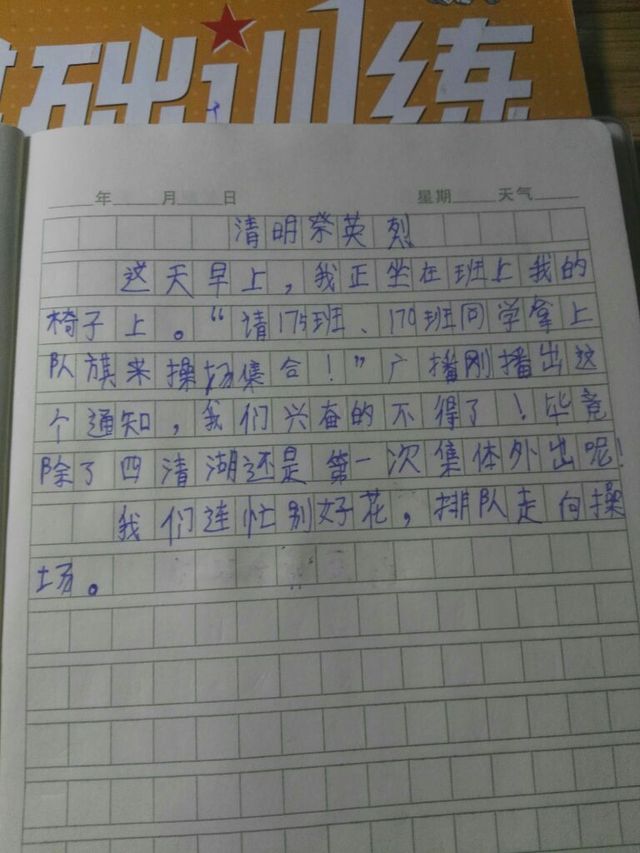 基础训练
年 月 日 星期 天气
清明祭英烈
这天早上，我正坐在班上我的
椅子上。“请175班、170班同学拿上
队旗来操场集合！”广播刚播出这
个通知，我们兴奋的不得了！毕竟
除了四清湖还是第一次集体外出呢！
我们连忙别好花，排队走向操
场。